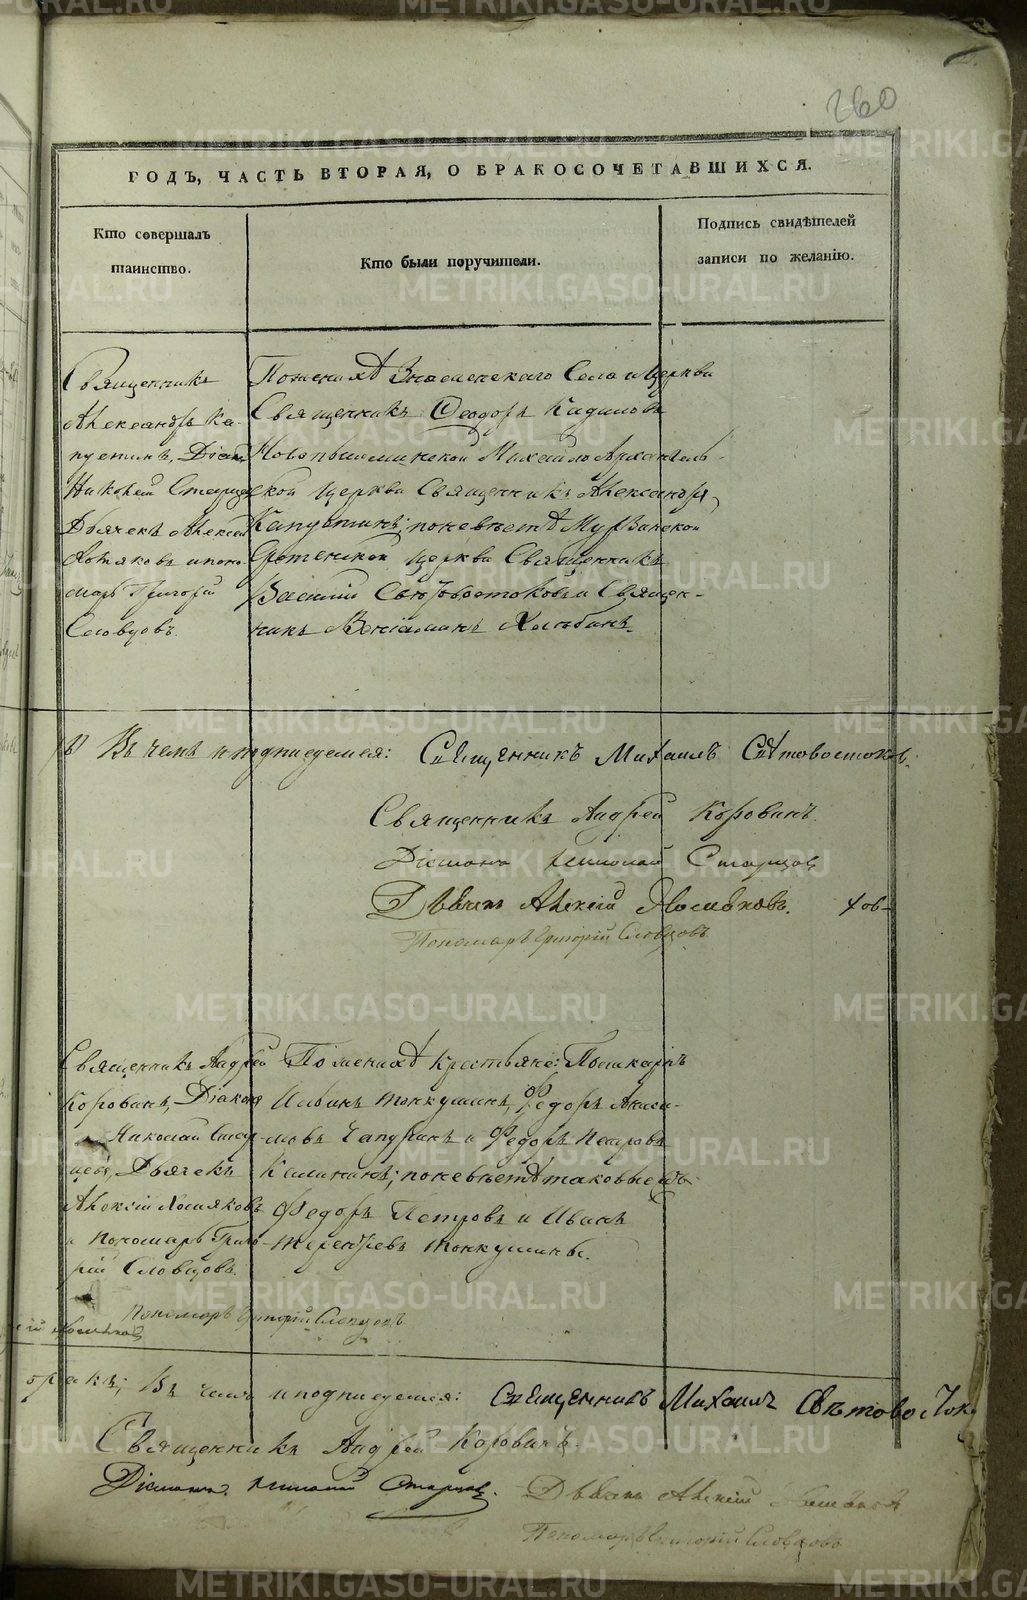 260
ГОДЪ, ЧАСТЬ ВТОРАЯ, О БРАКОСОЧЕТАВШИХСЯ.
Кто совершалъ таинство.
Кто были поручители.
Подпись свидѣтелей записи по желанію.
Священникъ
Александръ Ка-
пустинъ, Діаконъ
Николай Старцевъ
Дьячекъ Алексѣй
Хомяковъ и поно-
марь Григорій
Словцовъ.
По женихѣ Знаменскаго Села и Церкви
Священникъ Ѳеодоръ Кадиловъ
Новопышминской Михайло Архангель-
ской Церкви Священникъ Александръ
Капустинъ; по невѣстѣ Мурзинской
Срѣтенской Церкви Священникъ
Василій Свѣтовостоковъ и Священ-
никъ Веніаминъ Холѣбинъ.
Въ чемъ и подписуемся: Священникъ Михаилъ Свѣтовостоковъ.
Священникъ Андрей Коровинъ.
Діаконъ Николай Старцовъ
Дьячекъ Алексій Хомяковъ.
Пономарь Григорій Словцовъ
Священникъ Андрей
Коровинъ, Діаконъ
Николай Стар-
цевъ, Дьячекъ
Алексій Хомяковъ
и Пономарь Григо-
рій Словцовъ.
По женихѣ Крестьяне:
Ильинъ Тонкушинъ, Федоръ Аниси-
мовъ и Федоръ Петровъ
Калининъ; по невѣстѣ таковые жъ
Федоръ Петровъ и Иванъ
Терентьевъ Тонкушины.
Пономарь Григорій Словцовъ
бракъ; Въ чемъ и подписуемся: Священникъ Михаилъ Свѣтовосток
Священникъ Андрей Коровинъ.
Діаконъ Николай Старцовъ.
Дьячекъ Алексій Хомяковъ
Пономарь Григорій Словцовъ
METRIKI.GASO-URAL.RU